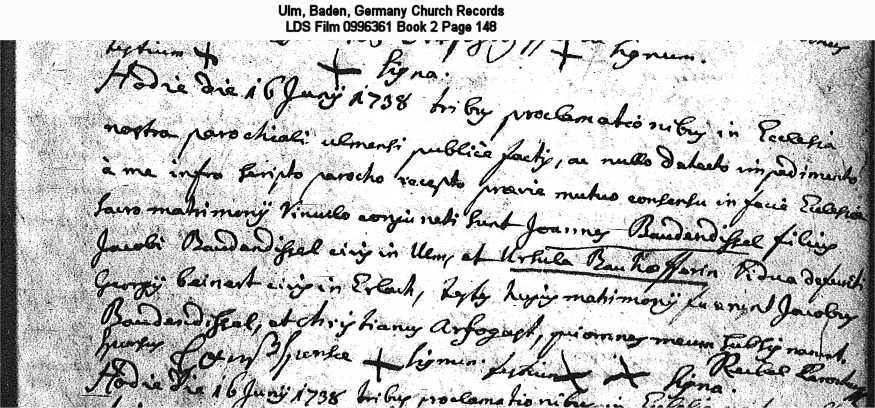 Ulm, Baden, Germany Church Records
LDS Film 0996361 Book 2 Page 148
testium + + signum.
+ signa.
Hodie die 16 Junÿ 1738 tribus proclamationibus in Ecclesia
nostra parochiali ulmensi publicè factis, ac nullo detecto impedimento
à me infra scripto parocho recepto prævie mutuo consensu in facie Ecclesiæ
sacro matrimonÿ vinculo conjuncti sunt Joannes Baudendissel filius
Jacobi Baudendissel civis in Ulm, et Ursula Bauhofferin vidua defuncti
Georgÿ beinert civis in Erlach, testes hujus matrimonÿ fuerunt Jacobus
Baudendissel, et christianus Arfogast, qui omnes mecum subsignarunt.
sponsus + signum. testium + + signa
Hodie die 16 Junÿ 1738 tribus proclamationibus in